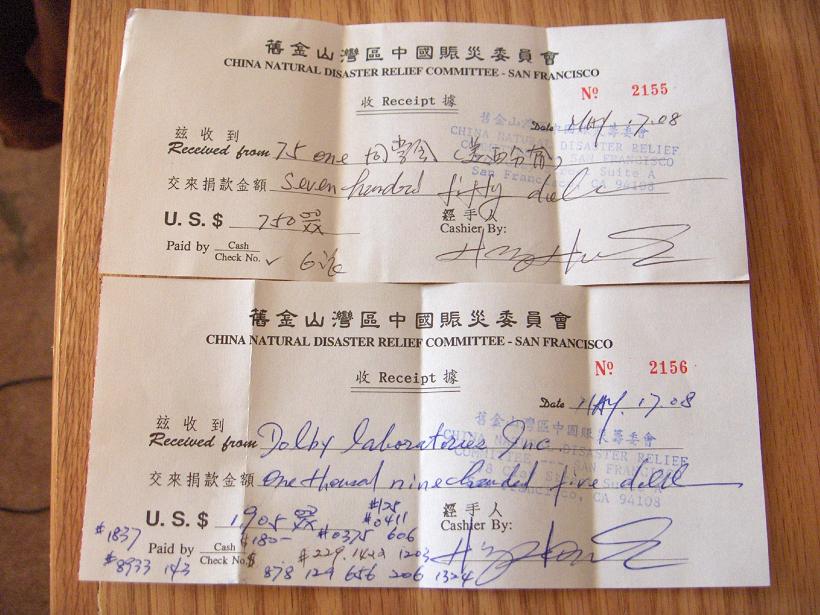 舊金山灣區中國賑災委員會
CHINA NATURAL DISASTER RELIEF COMMITTEE - SAN FRANCISCO
收 Receipt 據
Nº 2155
Date MAY. 17. 08
茲收到
Received from 75 one 同學會
交來捐款金額 Seven hundred fifty
U. S. $ 750 00/XX
經手人
Cashier By:
Paid by Cash
Check No. ✓
舊金山灣區中國賑災籌委會
CHINA NATURAL DISASTER RELIEF
COMMITTEE - SAN FRANCISCO
Suite A
San Francisco, CA 94108
舊金山灣區中國賑災委員會
CHINA NATURAL DISASTER RELIEF COMMITTEE - SAN FRANCISCO
收 Receipt 據
Nº 2156
Date MAY. 17. 08
茲收到
Received from Dolby laboratories Inc
交來捐款金額 One thousand nine hundred five
U. S. $ 1,905 00/XX
#125
#0411
經手人
Cashier By:
#1837
#180- #0375 606
Paid by Cash
Check No. $ #229.1422 1203
#8933 143 878 129 656 206 1324
舊金山灣區中國賑災籌委會
CHINA NATURAL DISASTER RELIEF
COMMITTEE - SAN FRANCISCO
San Francisco, CA 94108